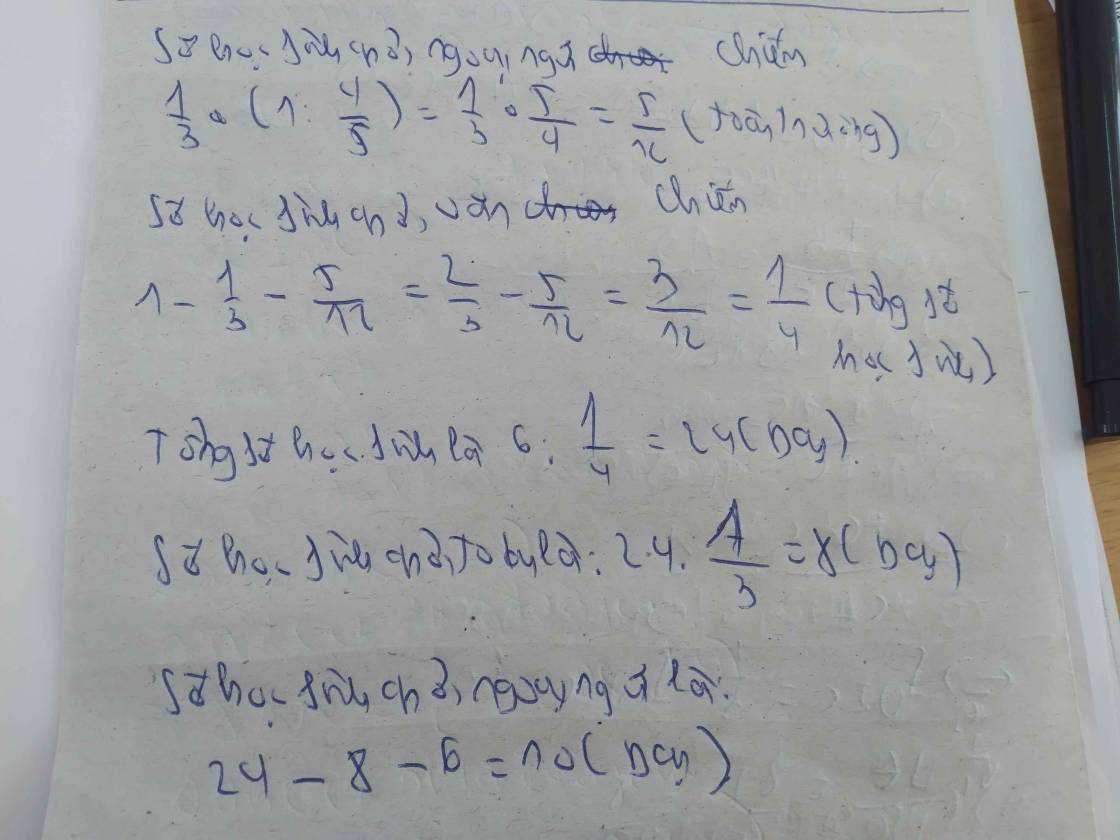 Số học sinh giỏi ngoại ngữ chiếm
1/3 . (1 : 4/5) = 1/3 . 5/4 = 5/12 (
Số học sinh giỏi văn chiếm
1 - 1/3 - 5/12 = 2/3 - 5/12 = 3/12 = 1/4 (tổng số
học sinh)
Tổng số học sinh là 6 : 1/4 = 24 (bạn).
Số học sinh giỏi toán là : 24 . 1/3 = 8 (bạn)
Số học sinh giỏi ngoại ngữ là:
24 - 8 - 6 = 10 (bạn)